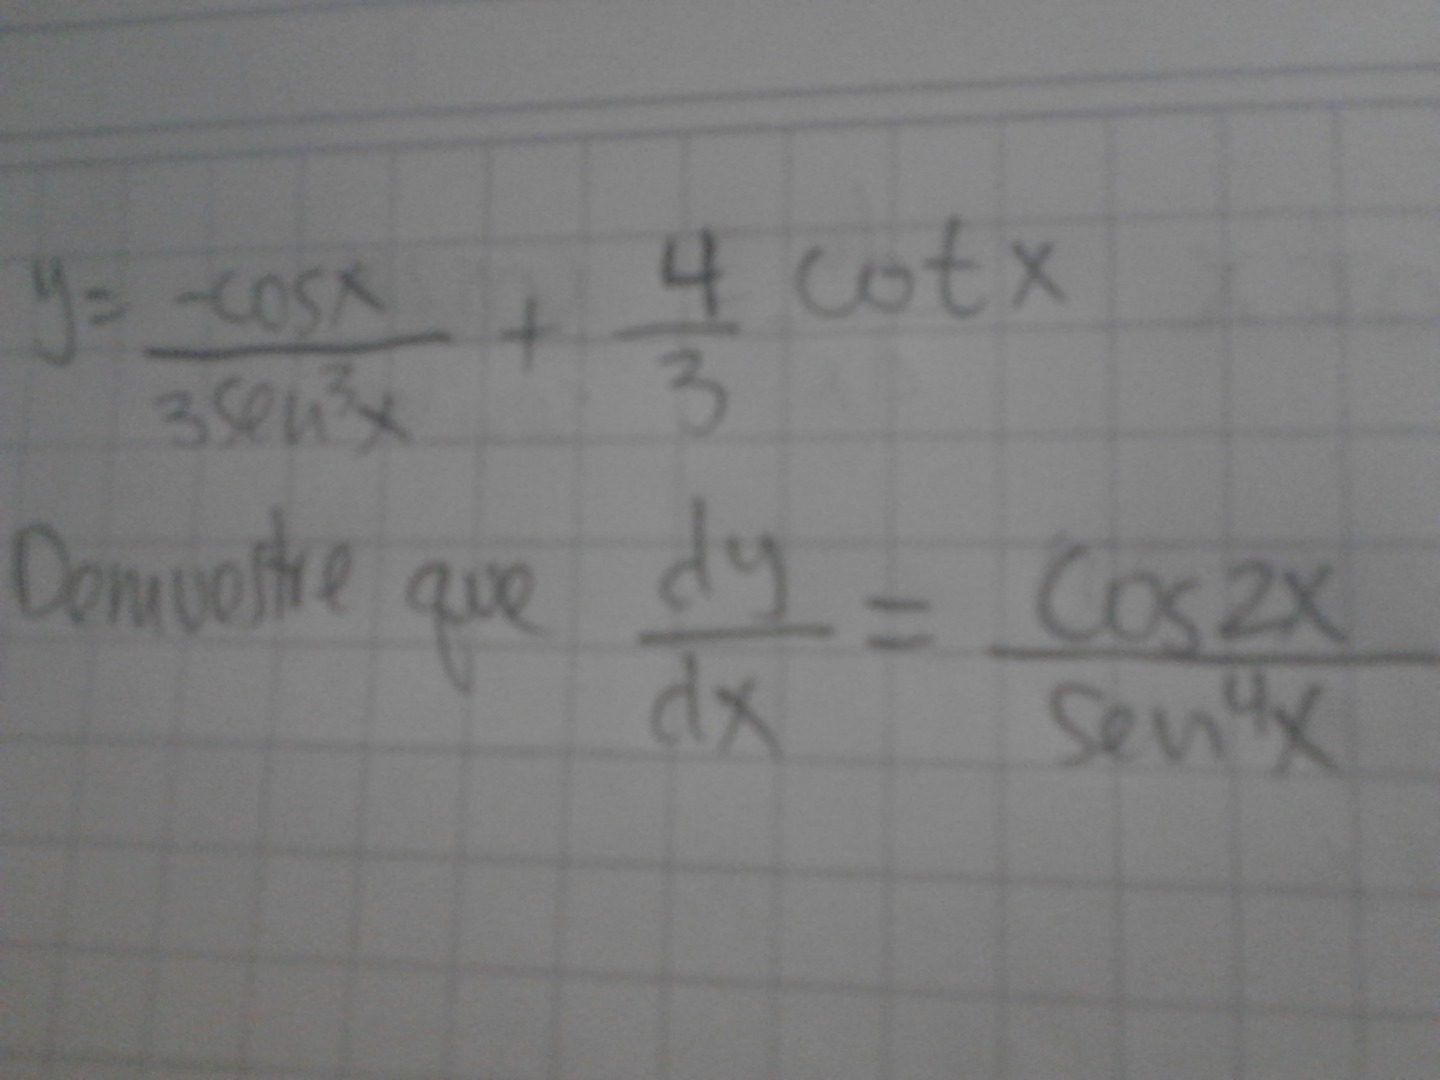 y = -cosx / 3sen³x + 4/3 cot x
Demuestre que dy/dx = Cos2x / sen⁴x